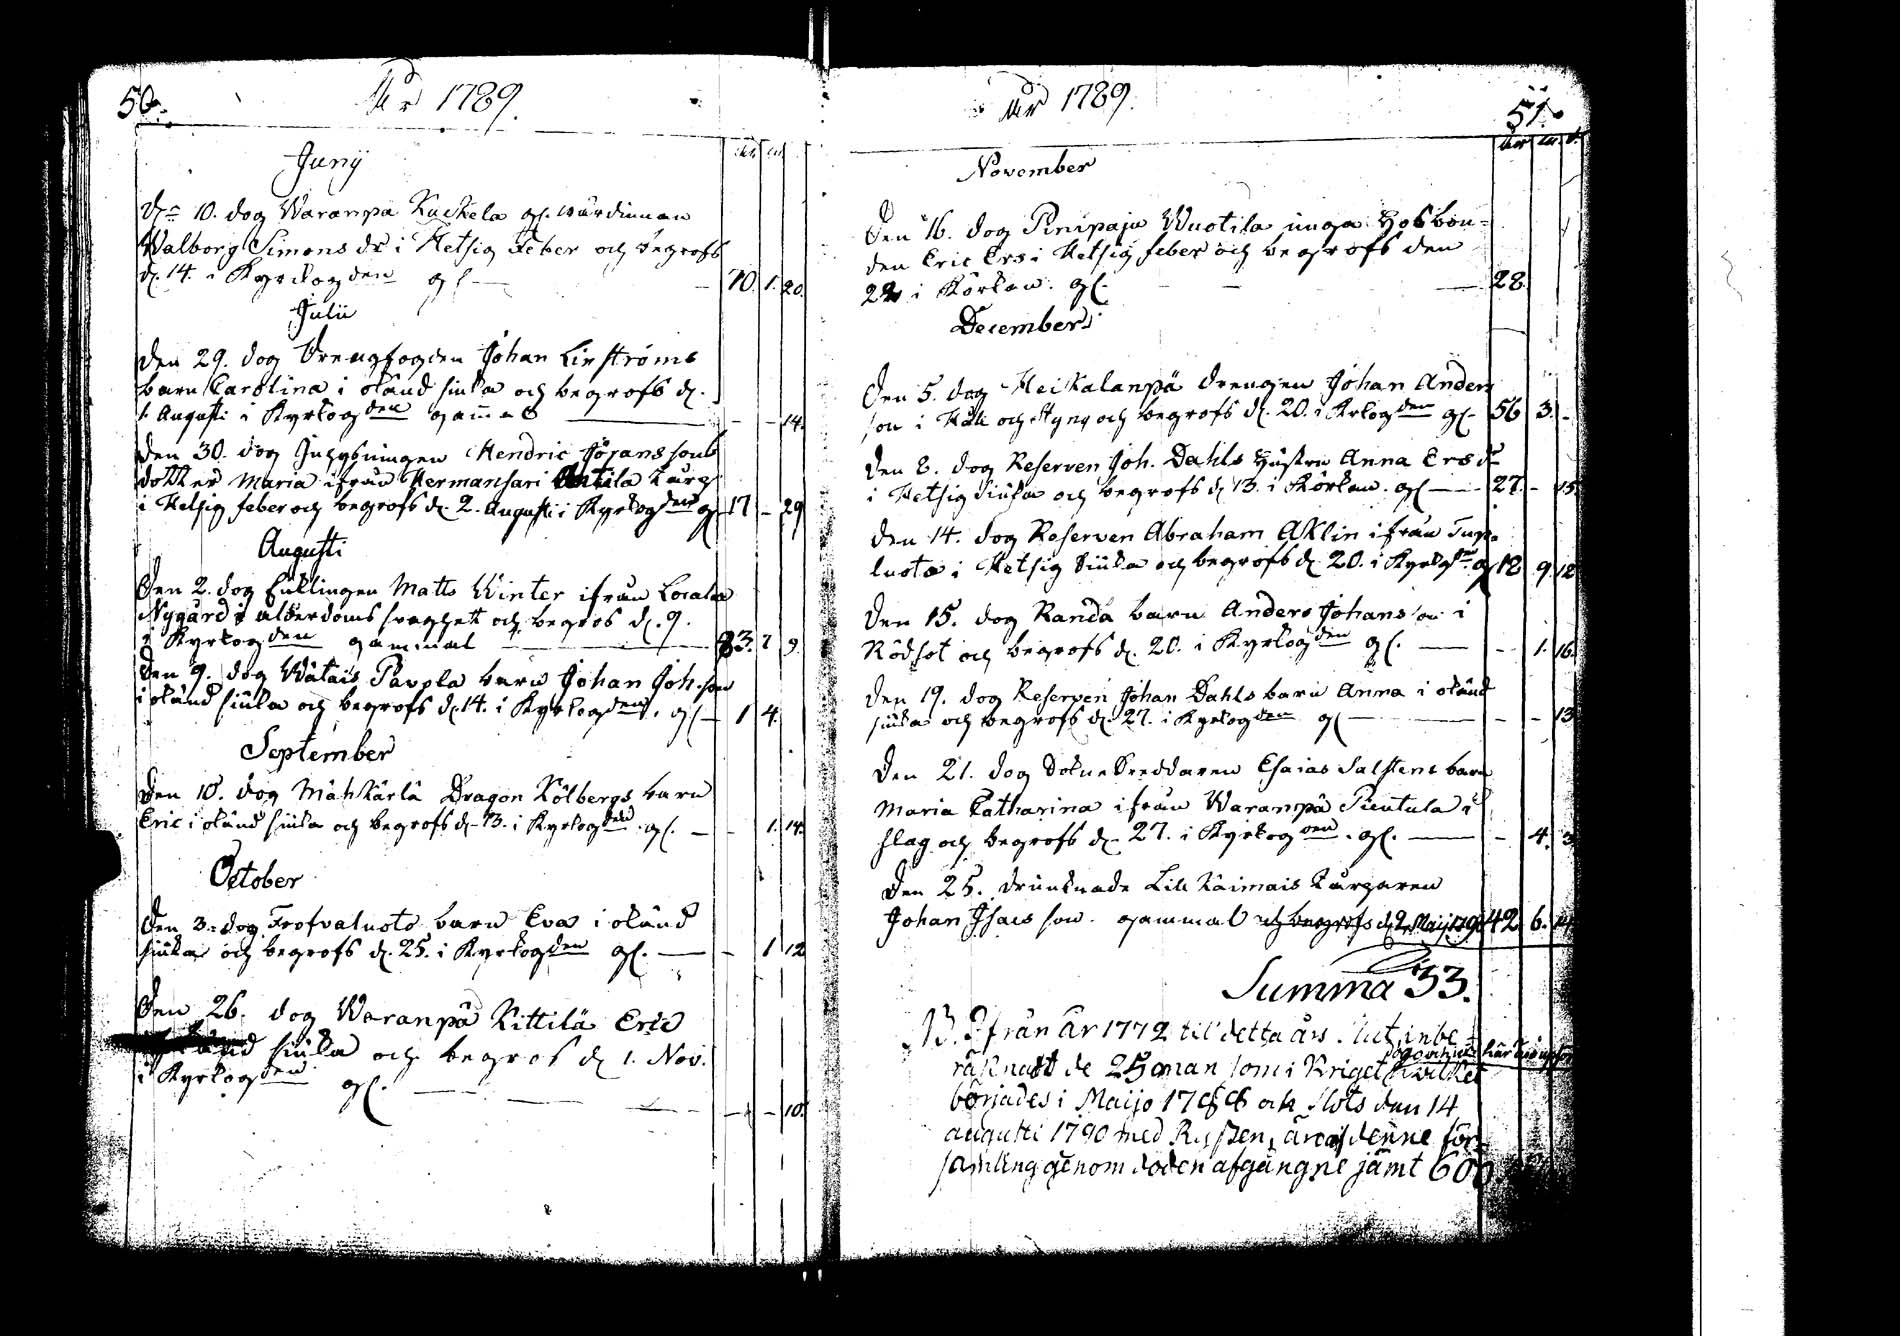 50.
År 1789.
åhr m
Junij
Dn 10. dog Waranpä Kackela gl. wärdinnan
Walborg Simons dr i Hetsig feber och begrofs
d. 14. i Kyrkogden gl — 70. 1. 20.
Julii
Den 29. dog Drengfogden Johan Linströms
barn Carolina i okänd siuka och begrofs d.
1. Augusti i Kyrkogden gammal — - - 14.
Den 30. dog Inhysningen Hendric Jörans sons
dotter Maria ifrån Hermansari Antila Torp
i Hetsig feber och begrofs d. 2. Augusti i Kyrkogden gl 17 - 29
Augusti
Den 2. dog Enklingen Matts Winter ifrån Locala
Nygård i ålderdoms svaghet och begros d. 9.
i Kyrkogden gammal — 83. 7 9.
Den 9. dog Wätais Pavola barn Johan Joh. son
i okänd siuka och begrofs d. 14. i Kyrkogden. gl — 1 4.
September
Den 10. dog Mähkärlä Dragon Kölbergs barn
Eric i okänd siuka och begrofs d. 13. i Kyrkogden. gl. — - 1. 14.
October
Den 3. dog Trofvaluoto barn Eva i okänd
siuka och begrofs d. 25. i Kyrkogden gl. — - 1 12
Den 26. dog Waranpä Kittilä Eric
okänd siuka och begros d. 1. Nov.
i Kyrkogden gl. — - - 10.
År 1789.
51.
åhr m. d.
November
Den 16. dog Pinipaju Wuotila unga Hosbon-
den Eric Ers i Hetsig feber och begrofs den
22 i Körkan. gl. — 28.
December
Den 5. dog Heikalanpä drengen Johan Anders
son i Håll och Styng och begrofs d. 20. i Krkogden gl. 56 3. -
Den 8. dog Reserven Joh. Dahls Hustru Anna Ers dr
i Hetsig siuka och begrofs d. 13. i Körkan. gl — 27. - 15.
Den 14. dog Reserven Abraham Aklin ifrån
luoto i Hetsig siuka och begrofs d. 20. i Kyrkogden. gl 18 9. 12
Den 15. dog Randa barn Anders Johans son i
Rödsot och begrofs d. 20. i Kyrkogden gl. — - 1. 16.
Den 19. dog Reserven Johan Dahls barn Anna i okänd
siuka och begrofs d. 27. i Kyrkogden gl — - - 13
Den 21. dog Sokneskreddaren Esaias Salstens barn
Maria Catharina ifrån Waranpä Pientala i
slag och begrofs d. 27. i Kyrkogden. gl. — - 4. 3
Den 25. drunknade Lill Kaimais Torparen
Johan Isacs son. gammal och begrofs d. 2. Maij 1790 42 6.
Summa 33.
NB. Ifrån År 1772 til detta års slut, inbe-
räknadt de 25 man som i Kriget hvilket
börjades i Maijo 1788 och slöts den 14
augusti 1790 med Ryssen, äro af denne för-
samling genom döden afgångne jämt 600.